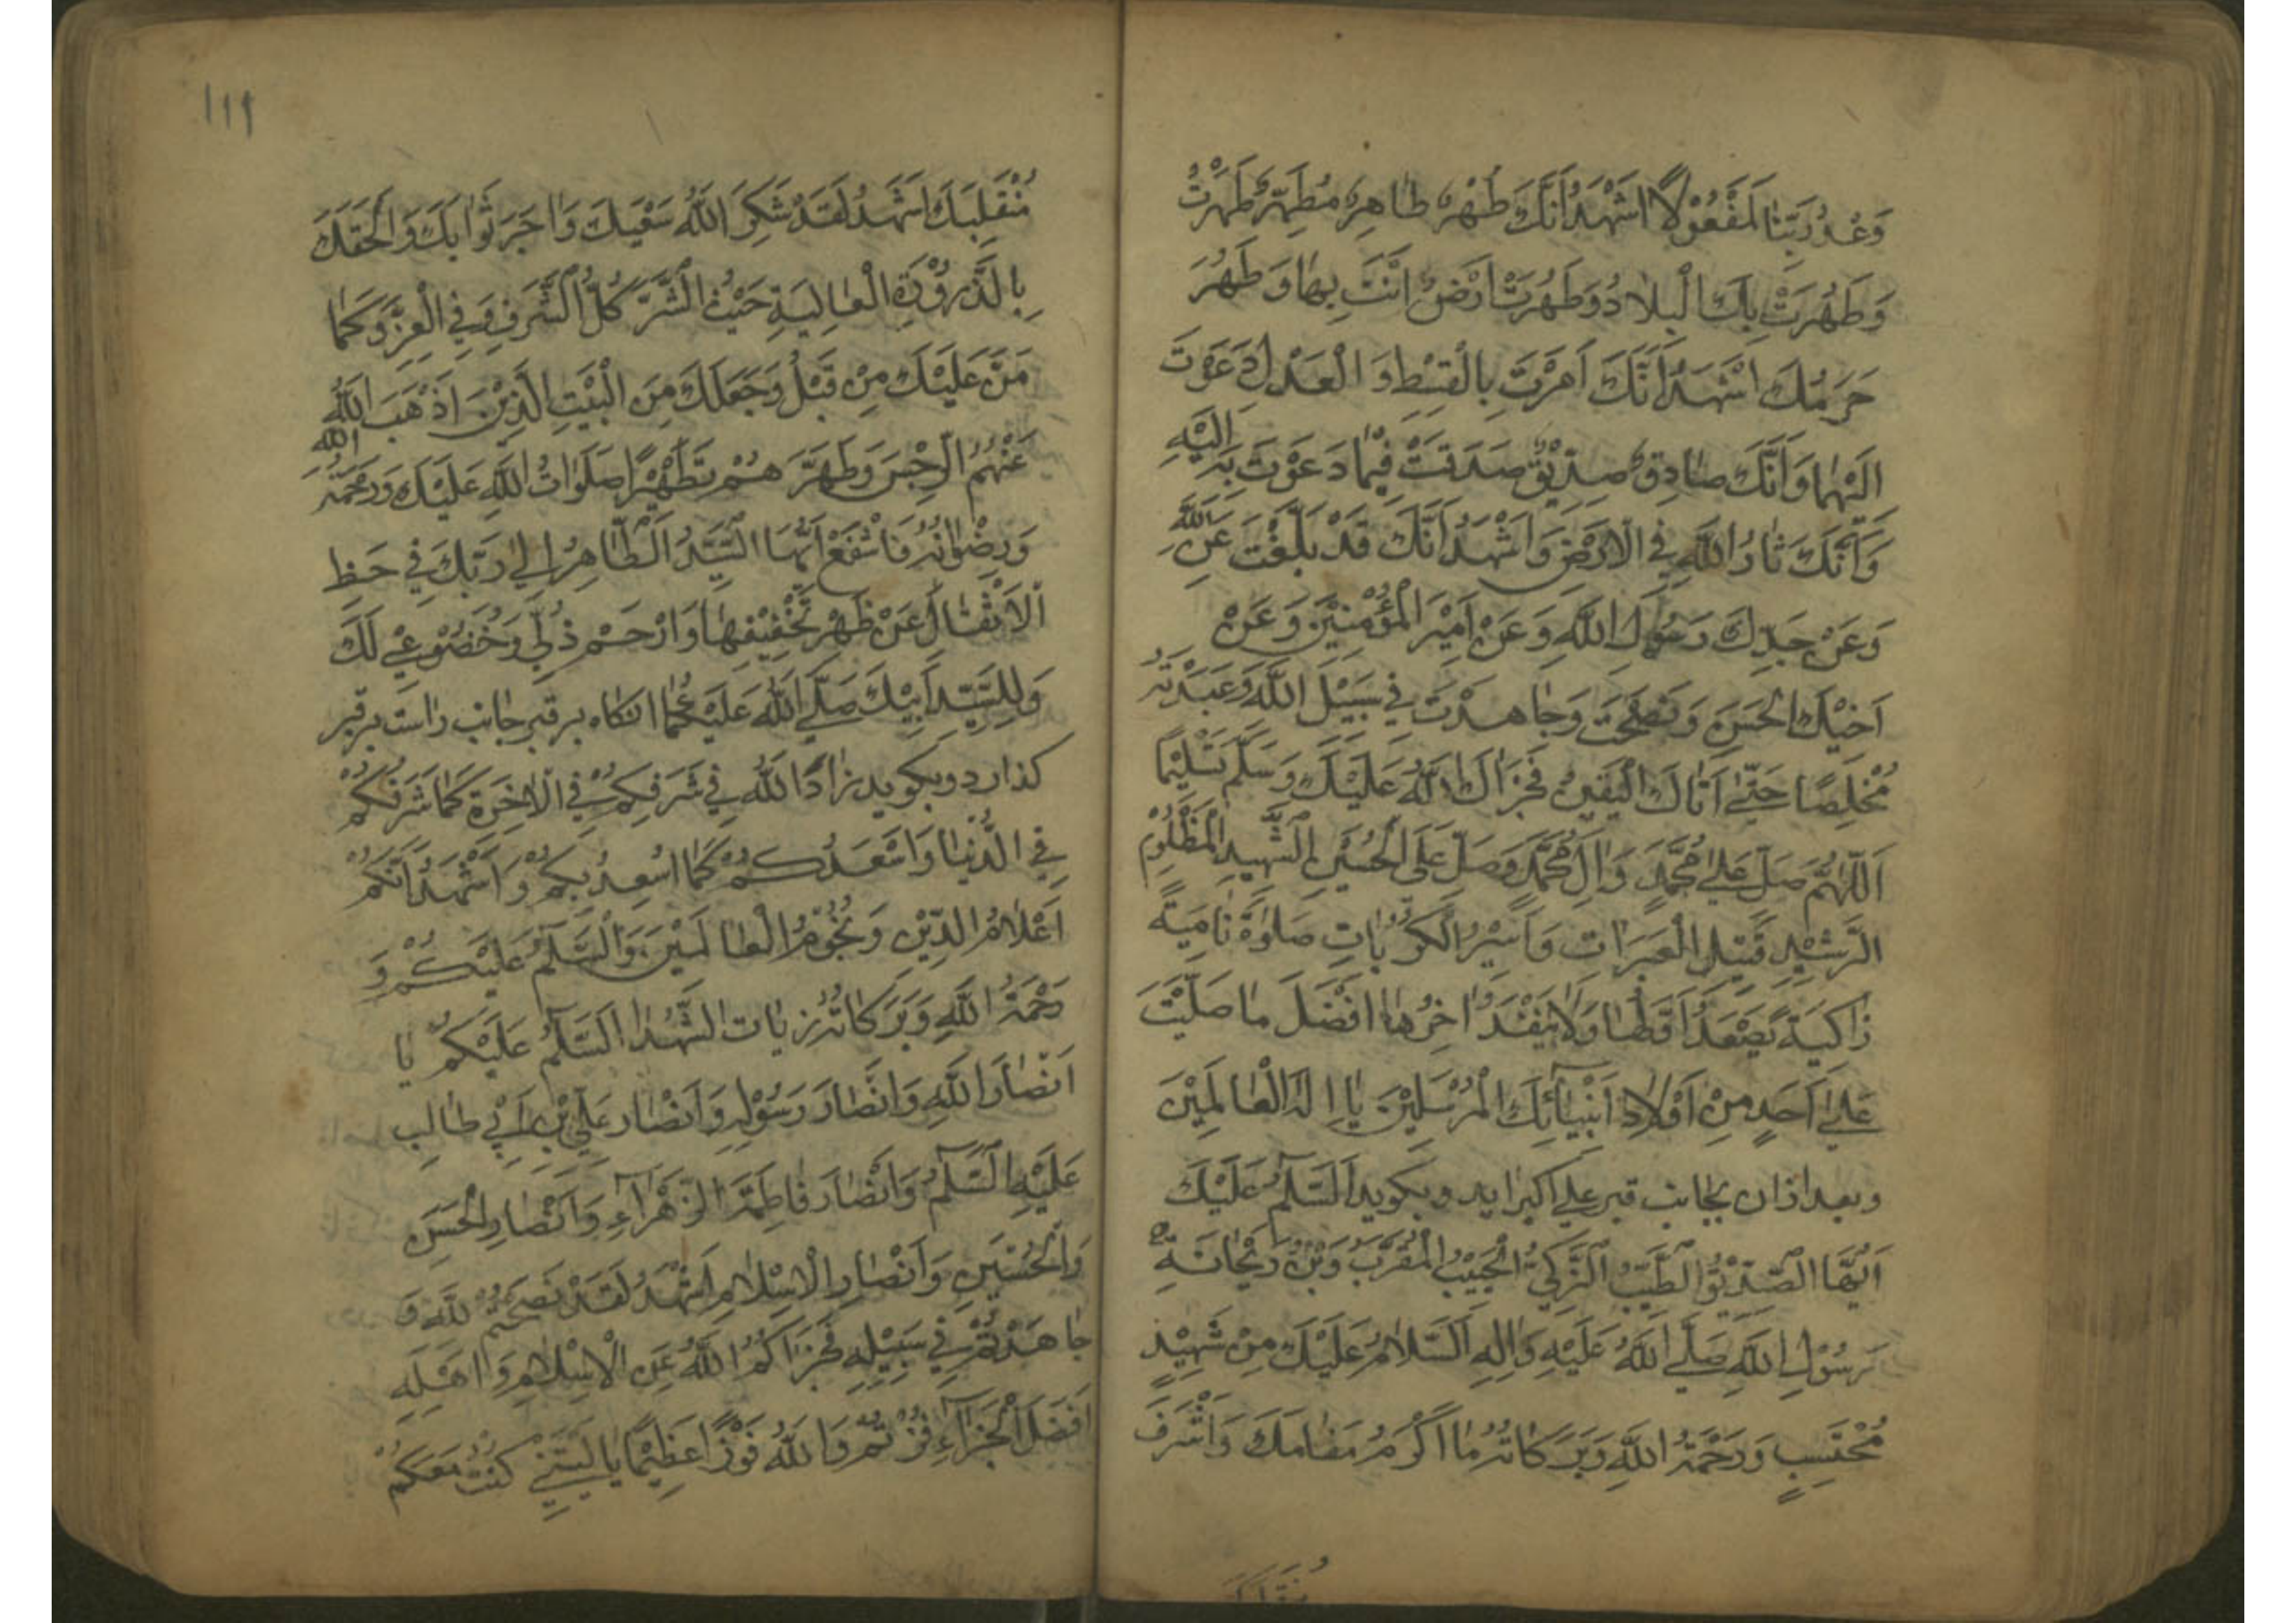 وَعْدُ رَبِّنَا لَمَفْعُوْلًا اَشْهَدُ اَنَّكَ طُهْرٌ طَاهِرٌ مُطَهَّرٌ طَهُرْتَ
وَطَهُرَتْ بِكَ الْبِلَادُ وَطَهُرَتْ اَرْضٌ اَنْتَ بِهَا وَطَهُرَ
حَرَمُكَ اَشْهَدُ اَنَّكَ اَمَرْتَ بِالْقِسْطِ وَ الْعَدْلِ وَ دَعَوْتَ
اِلَيْهِمَا وَاَنَّكَ صَادِقٌ صِدِّيْقٌ صَدَقْتَ فِيْمَا دَعَوْتَ بِهِ اِلَيْهِ
وَاَنَّكَ ثَارُ اللّٰهِ فِي الْاَرْضِ وَاَشْهَدُ اَنَّكَ قَدْ بَلَّغْتَ عَنِ اللّٰهِ
وَعَنْ جَدِّكَ رَسُوْلِ اللّٰهِ وَعَنْ اَمِيْرِ الْمُؤْمِنِيْنَ وَعَنْ
اَخِيْكَ الْحَسَنِ وَنَصَحْتَ وَجَاهَدْتَ فِي سَبِيْلِ اللّٰهِ وَعَبَدْتَهُ
مُخْلِصًا حَتّٰى اَتَاكَ الْيَقِيْنُ فَجَزَاكَ اللّٰهُ عَلَيْكَ وَسَلَّمَ تَسْلِيْمًا
اَللّٰهُمَّ صَلِّ عَلٰى مُحَمَّدٍ وَاٰلِ مُحَمَّدٍ وَصَلِّ عَلَى الْحُسَيْنِ الشَّهِيْدِ الْمَظْلُوْمِ
الرَّشِيْدِ قَتِيْلِ الْعَبَرَاتِ وَاَسِيْرِ الْكُرُبَاتِ صَلٰوةً نَامِيَةً
زَاكِيَةً يَصْعَدُ اَوَّلُهَا وَلَا يَنْفَدُ اٰخِرُهَا اَفْضَلَ مَا صَلَّيْتَ
عَلٰى اَحَدٍ مِنْ اَوْلَادِ اَنْبِيَآئِكَ الْمُرْسَلِيْنَ يَا اِلٰهَ الْعَالَمِيْنَ
وبعد ازان بجانب قبر علي اكبر ايد و بكويد اَلسَّلَامُ عَلَيْكَ
اَيُّهَا الصِّدِّيْقُ الطَّيِّبُ الزَّكِيُّ الْحَبِيْبُ الْمُقَرَّبُ وَبْنُ رَيْحَانَةِ
رَسُوْلِ اللّٰهِ صَلَّى اللّٰهُ عَلَيْهِ وَاٰلِهِ اَلسَّلَامُ عَلَيْكَ مِنْ شَهِيْدٍ
مُحْتَسِبٍ وَرَحْمَةُ اللّٰهِ وَبَرَكَاتُهُ مَا اَكْرَمَ مَقَامَكَ وَاَشْرَفَ
مُنْقَلَبَكَ
١١١
مُنْقَلَبَكَ اَشْهَدُ لَقَدْ شَكَرَ اللّٰهُ سَعْيَكَ وَاَجْزَلَ ثَوَابَكَ وَاَلْحَقَكَ
بِالذِّرْوَةِ الْعَالِيَةِ حَيْثُ الشَّرَفُ كُلُّ الشَّرَفِ وَفِي الْعِزِّ وَكَمَا
مَنَّ عَلَيْكَ مِنْ قَبْلُ وَجَعَلَكَ مِنَ الْبَيْتِ الَّذِيْنَ اَذْهَبَ اللّٰهُ
عَنْهُمُ الرِّجْسَ وَطَهَّرَ هُمْ تَطْهِيْرًا صَلَوَاتُ اللّٰهِ عَلَيْكَ وَرَحْمَةُ اللّٰهِ
وَرِضْوَانُهُ فَاشْفَعْ اَيُّهَا السَّيِّدُ الطَّاهِرُ اِلٰى رَبِّكَ فِي حَطِّ
الْاَثْقَالِ عَنْ ظَهْرِ تَخْفِيْفِهَا وَارْحَمْ ذُلِّي وَخُضُوْعِي لَكَ
وَلِلسَّيِّدِ اَبِيْكَ صَلَّى اللّٰهُ عَلَيْكُمَا انكاه بر قبر جانب راست بر قبر
كذارد وبكويد زَادَ اللّٰهُ فِي شَرَفِكُمْ فِي الْاٰخِرَةِ كَمَا شَرَّفَكُمْ
فِي الدُّنْيَا وَاَسْعَدَكُمْ كَمَا اَسْعَدَ بِكُمْ وَاَشْهَدُ اَنَّكُمْ
اَعْلَامُ الدِّيْنِ وَنُجُوْمُ الْعَالَمِيْنَ وَالسَّلَامُ عَلَيْكُمْ وَ
رَحْمَةُ اللّٰهِ وَبَرَكَاتُهُ زيات الشُّهَدَا اَلسَّلَامُ عَلَيْكُمْ يَا
اَنْصَارَ اللّٰهِ وَاَنْصَارَ رَسُوْلِهِ وَاَنْصَارَ عَلِيِّ بْنِ اَبِي طَالِبٍ
عَلَيْهِ السَّلَامُ وَاَنْصَارَ فَاطِمَةَ الزَّهْرَآءِ وَاَنْصَارَ الْحَسَنِ
وَالْحُسَيْنِ وَاَنْصَارَ الْاِسْلَامِ اَشْهَدُ لَقَدْ نَصَحْتُمْ لِلّٰهِ وَ
جَاهَدْتُمْ فِي سَبِيْلِهِ فَجَزَاكُمُ اللّٰهُ عَنِ الْاِسْلَامِ وَاَهْلِهِ
اَفْضَلَ الْجَزَآءِ فُزْتُمْ وَاللّٰهِ فَوْزًا عَظِيْمًا يَا لَيْتَنِي كُنْتُ مَعَكُمْ